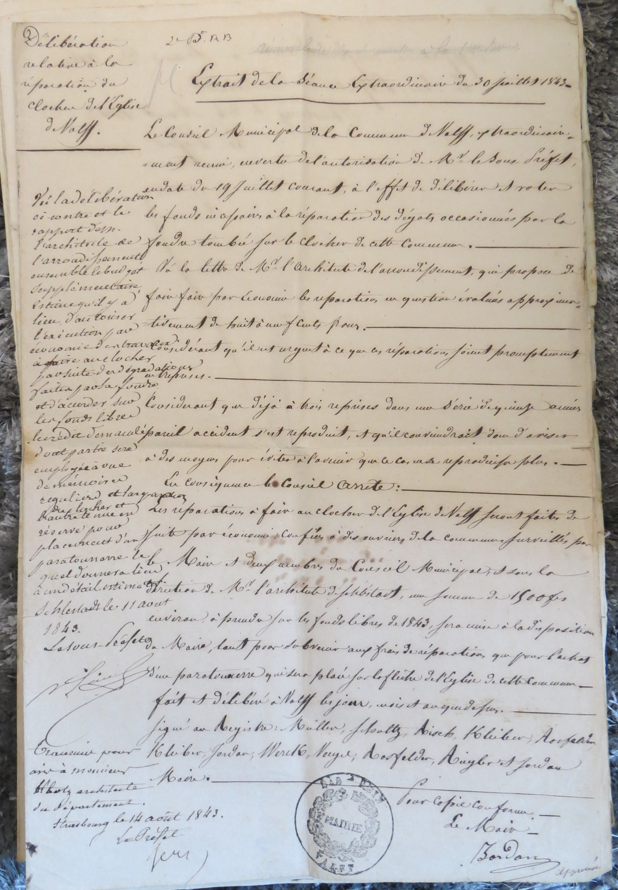 2
Délibération
relative à la
réparation du
clocher de l'Eglise
de Valff.
Extrait de la Séance Extraordinaire du 30 Juillet 1843.
Le Conseil Municipal de la Commune de Valff, extraordinaire-
ment réuni, en vertu de l'autorisation de Mr. le Sous Préfet,
en date du 19 Juillet courant, à l'effet de délibérer et voter
les fonds nécessaires à la réparation des dégats occasionnés par la
foudre tombée sur le clocher de cette Commune.
Vu la lettre de Mr. l'Architecte de l'arrondissement, qui propose de
faire faire par économie les réparations en question évaluées approxima-
tivement de huit à neuf cents francs.
Considérant qu'il est urgent à ce que ces réparations soient promptement
entreprises.
Considérant que déjà à trois reprises dans une série de quinze années
pareil accident s'est reproduit, et qu'il conviendrait donc d'aviser
à des moyens pour éviter à l'avenir que ce cas se reproduise plus.
En conséquence le Conseil arrête:
Les réparations à faire au clocher de l'Eglise de Valff seront faites de
suite par économie, confiées à des ouvriers de la commune surveillés par
le Maire et deux membres du Conseil Municipal, et sous la
direction de Mr. l'architecte de Schlestadt, une somme de 1500 frs
environ, à prendre sur les fonds libres de 1843, sera mise à la disposition
du Maire, tant pour subvenir aux frais de réparations que pour l'achat
d'un paratonnerre qui sera placé sur la flèche de l'Eglise de cette commune
fait et délibéré à Valff les jour, mois et an que dessus.
Signé au Registre: Müller, Schultz, Risch, Kleiber, Rosfelder,
Kleiber, Jordan, Werck, Vogel, Rosfelder, Ringler et Jordan
Maire.
Pour copie conforme.
Le Maire
Jordan
Vu la délibération
ci contre et le
rapport de M.
l'architecte de
l'arrondissement
ensemble le budget
supplémentaire
estime qu'il y a
lieu d'autoriser
l'exécution par
économie des travaux
à faire au clocher
par suite des dégradations
faites par la foudre
et d'accorder sur
les fonds libres
le crédit demandé
dont partie sera
employée à vue
de mémoires
réguliers et
du clocher et
l'autre tenue en
réserve pour
placement d'un
paratonnerre le
quel donnera lieu
à un détail estimatif
Schlestadt le 11 août
1843.
Le Sous-Préfet
Transmis pour
avis à monsieur
architecte
du département.
Strasbourg le 14 août 1843.
Le Préfet
MAIRIE
VALFF